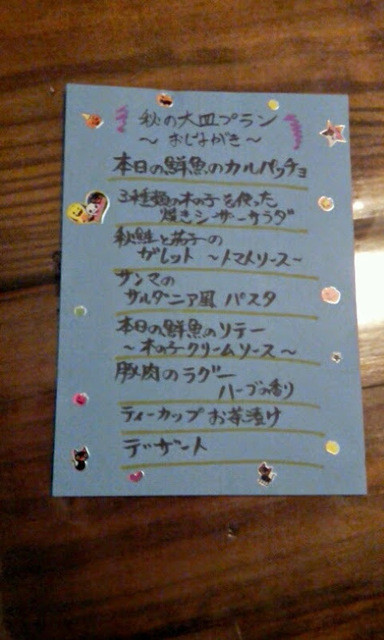 秋の大皿プラン
～おしながき～
本日の鮮魚のカルパッチョ
3種類の木の子を使った
焼きシーザーサラダ
秋鮭と茄子の
ガレット ～トマトソース～
サンマの
サルデーニア風 パスタ
本日の鮮魚のソテー
～木の子クリームソース～
豚肉のラグー
ハーブの香り
ティーカップお茶漬け
デザート